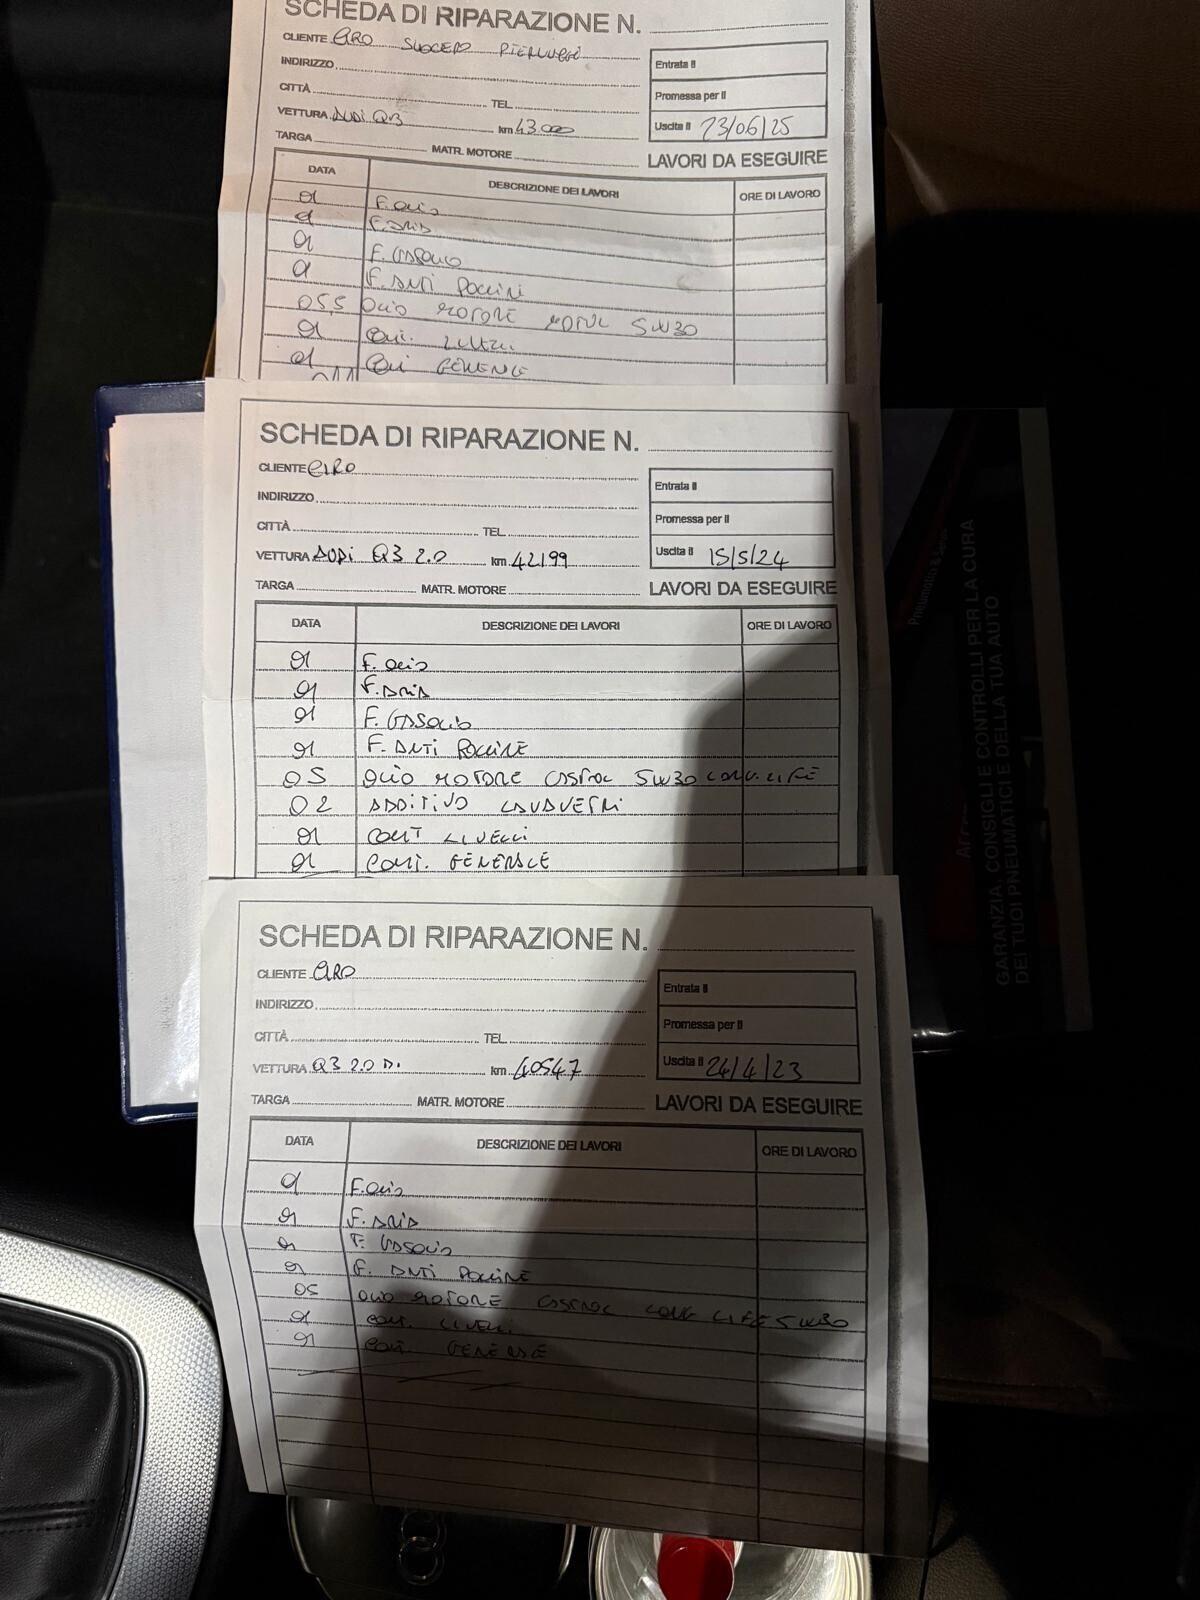 SCHEDA DI RIPARAZIONE N.
CLIENTE CIRO SUOCERO PIERLUIGI
INDIRIZZO
CITTÀ TEL.
VETTURA AUDI Q3 km 43.000
TARGA MATR. MOTORE
Entrata il
Promessa per il
Uscita il 23/06/25
LAVORI DA ESEGUIRE
DATA DESCRIZIONE DEI LAVORI ORE DI LAVORO
01 F. OLIO
01 F. ARIA
01 F. GASOLIO
01 F. ANTI POLLINI
05,5 OLIO MOTORE MOTUL 5W30
01 CONT. LIVELLI
01 CONT GENERALE
SCHEDA DI RIPARAZIONE N.
CLIENTE CIRO
INDIRIZZO
CITTÀ TEL.
VETTURA AUDI Q3 2.0 km 42199
TARGA MATR. MOTORE
Entrata il
Promessa per il
Uscita il 15/5/24
LAVORI DA ESEGUIRE
DATA DESCRIZIONE DEI LAVORI ORE DI LAVORO
01 F. OLIO
01 F. ARIA
01 F. GASOLIO
01 F. ANTI POLLINE
05 OLIO MOTORE CASTROL 5W30 LONG LIFE
02 ADDITIVO LAVAVETRI
01 CONT LIVELLI
01 CONT. GENERALE
SCHEDA DI RIPARAZIONE N.
CLIENTE CIRO
INDIRIZZO
CITTÀ TEL.
VETTURA Q3 2.0 D. km 40547
TARGA MATR. MOTORE
Entrata il
Promessa per il
Uscita il 24/4/23
LAVORI DA ESEGUIRE
DATA DESCRIZIONE DEI LAVORI ORE DI LAVORO
01 F. OLIO
01 F. ARIA
01 F. GASOLIO
01 F. ANTI POLLINE
05 OLIO MOTORE CASTROL LONG LIFE 5W30
01 CONT. LIVELLI
01 CONT. GENERALE
Pneumatici &
GARANZIA, CONSIGLI E CONTROLLI PER LA CURA
DEI TUOI PNEUMATICI E DELLA TUA AUTO